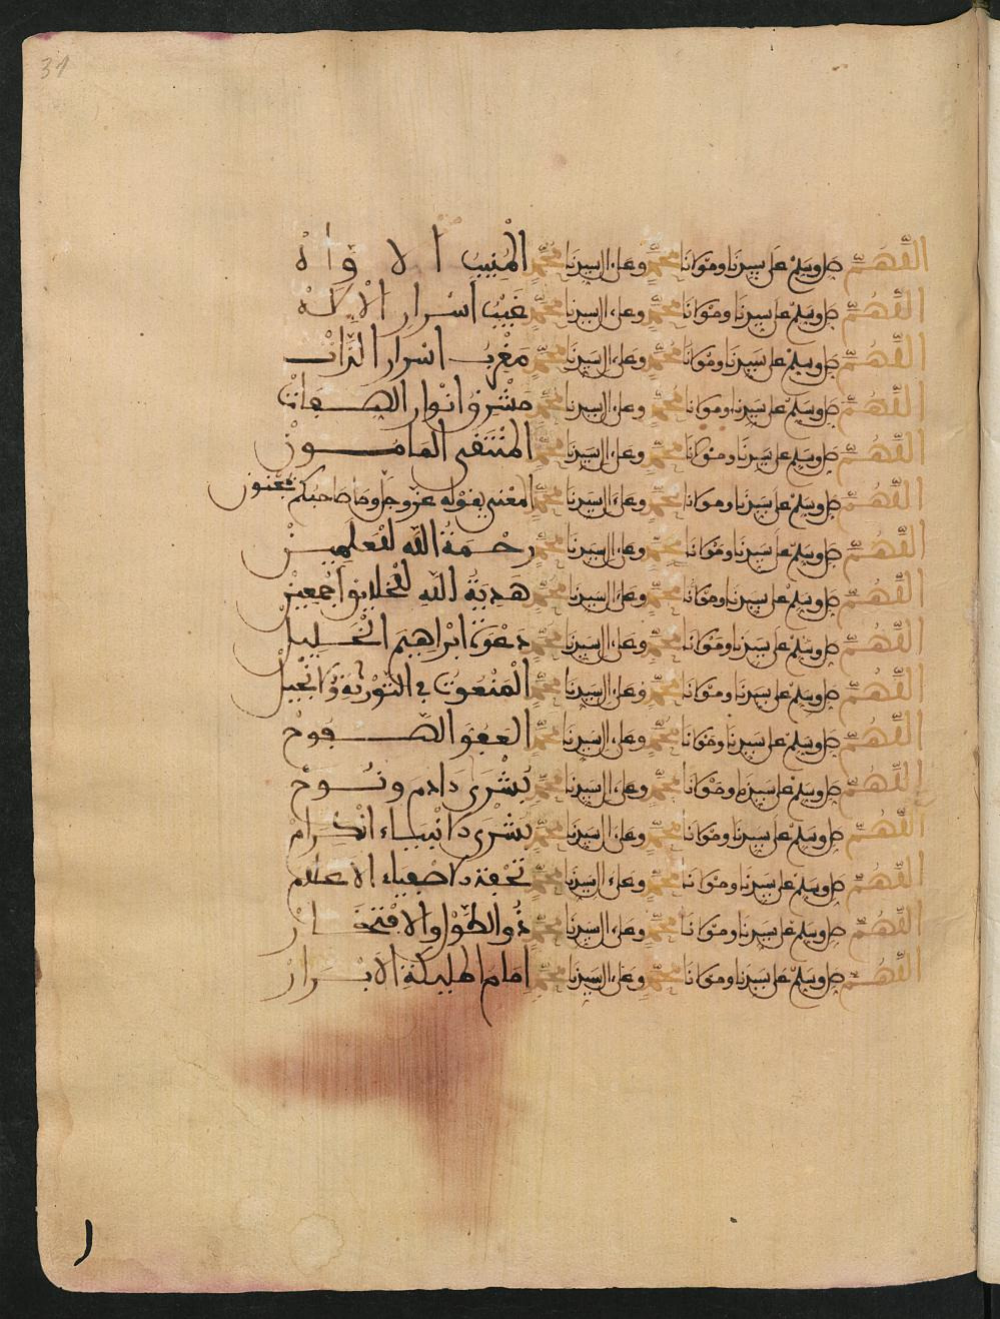 31
اللهم صل وسلم على سيدنا ومولانا محمد وعلى ال سيدنا محمد المنيب الاواه
اللهم صل وسلم على سيدنا ومولانا محمد وعلى ال سيدنا محمد غيب اسرار الاله
اللهم صل وسلم على سيدنا ومولانا محمد وعلى ال سيدنا محمد مغرب اسرار الذات
اللهم صل وسلم على سيدنا ومولانا محمد وعلى ال سيدنا محمد مشرق انوار الصفات
اللهم صل وسلم على سيدنا ومولانا محمد وعلى ال سيدنا محمد المنتقى المامون
اللهم صل وسلم على سيدنا ومولانا محمد وعلى ال سيدنا محمد المعني بقوله عز وجل وما صاحبكم بمجنون
اللهم صل وسلم على سيدنا ومولانا محمد وعلى ال سيدنا محمد رحمة الله للعلمين
اللهم صل وسلم على سيدنا ومولانا محمد وعلى ال سيدنا محمد هدية الله للخلايق اجمعين
اللهم صل وسلم على سيدنا ومولانا محمد وعلى ال سيدنا محمد دعوة ابراهيم الخليل
اللهم صل وسلم على سيدنا ومولانا محمد وعلى ال سيدنا محمد المنعوت في التورية والانجيل
اللهم صل وسلم على سيدنا ومولانا محمد وعلى ال سيدنا محمد العفو الصفوح
اللهم صل وسلم على سيدنا ومولانا محمد وعلى ال سيدنا محمد بشرى ءادم ونوح
اللهم صل وسلم على سيدنا ومولانا محمد وعلى ال سيدنا محمد بشرى الانبياء الكرام
اللهم صل وسلم على سيدنا ومولانا محمد وعلى ال سيدنا محمد تحفة الاصفياء الاعلام
اللهم صل وسلم على سيدنا ومولانا محمد وعلى ال سيدنا محمد ذو الطول والافتخار
اللهم صل وسلم على سيدنا ومولانا محمد وعلى ال سيدنا محمد امام مليكة الابرار